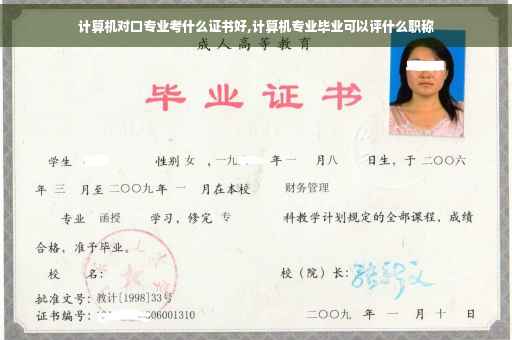 计算机对口专业考什么证书好,计算机专业毕业可以评什么职称
成人高等教育
毕业证书
学生 性别 女 ,一九 年 一 月 八 日生, 于 二〇〇六
年 三 月至 二〇〇九 年 一 月在本校 财务管理
专业 函授 学习, 修完 专 科教学计划规定的全部课程, 成绩
合格, 准予毕业。
校 名: 校(院)长:
批准文号: 教计[1998]33号
证书编号: 06001310 二〇〇九 年 一 月 十 日